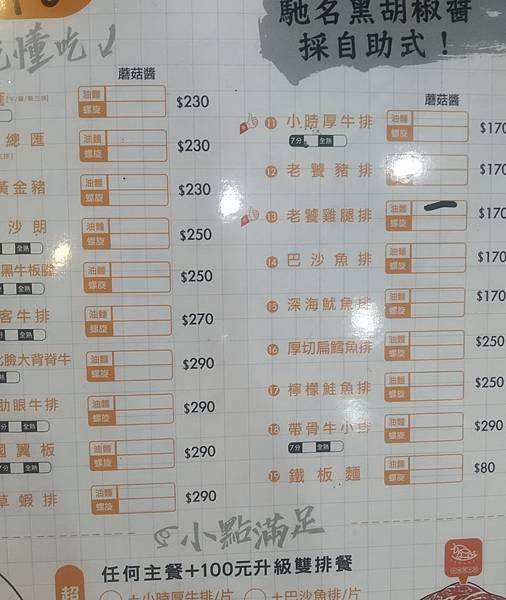 馳名黑胡椒醬
採自助式！
懂吃
蘑菇醬
油麵
螺旋
$230
總匯
油麵
螺旋
$230
黃金豬
油麵
螺旋
$230
沙朗
油麵
螺旋
$250
全熟
黑牛板腱
油麵
螺旋
$250
全熟
客牛排
油麵
螺旋
$270
全熟
臉大背脊牛
油麵
螺旋
$290
熟
肋眼牛排
油麵
螺旋
$290
7分 全熟
國翼板
油麵
螺旋
$290
7分 全熟
草蝦排
油麵
螺旋
$290
蘑菇醬
11 小時厚牛排
油麵
螺旋
$170
7分 全熟
12 老饕豬排
油麵
螺旋
$170
13 老饕雞腿排
油麵
螺旋
$170
14 巴沙魚排
油麵
螺旋
$170
15 深海魷魚排
油麵
螺旋
$170
16 厚切扁鱈魚排
油麵
螺旋
$250
17 檸檬鮭魚排
油麵
螺旋
$250
18 帶骨牛小排
油麵
螺旋
$290
7分 全熟
19 鐵板麵
油麵
螺旋
$80
小點滿足
超
任何主餐+100元升級雙排餐
+小時厚牛排/片
+巴沙魚排/片